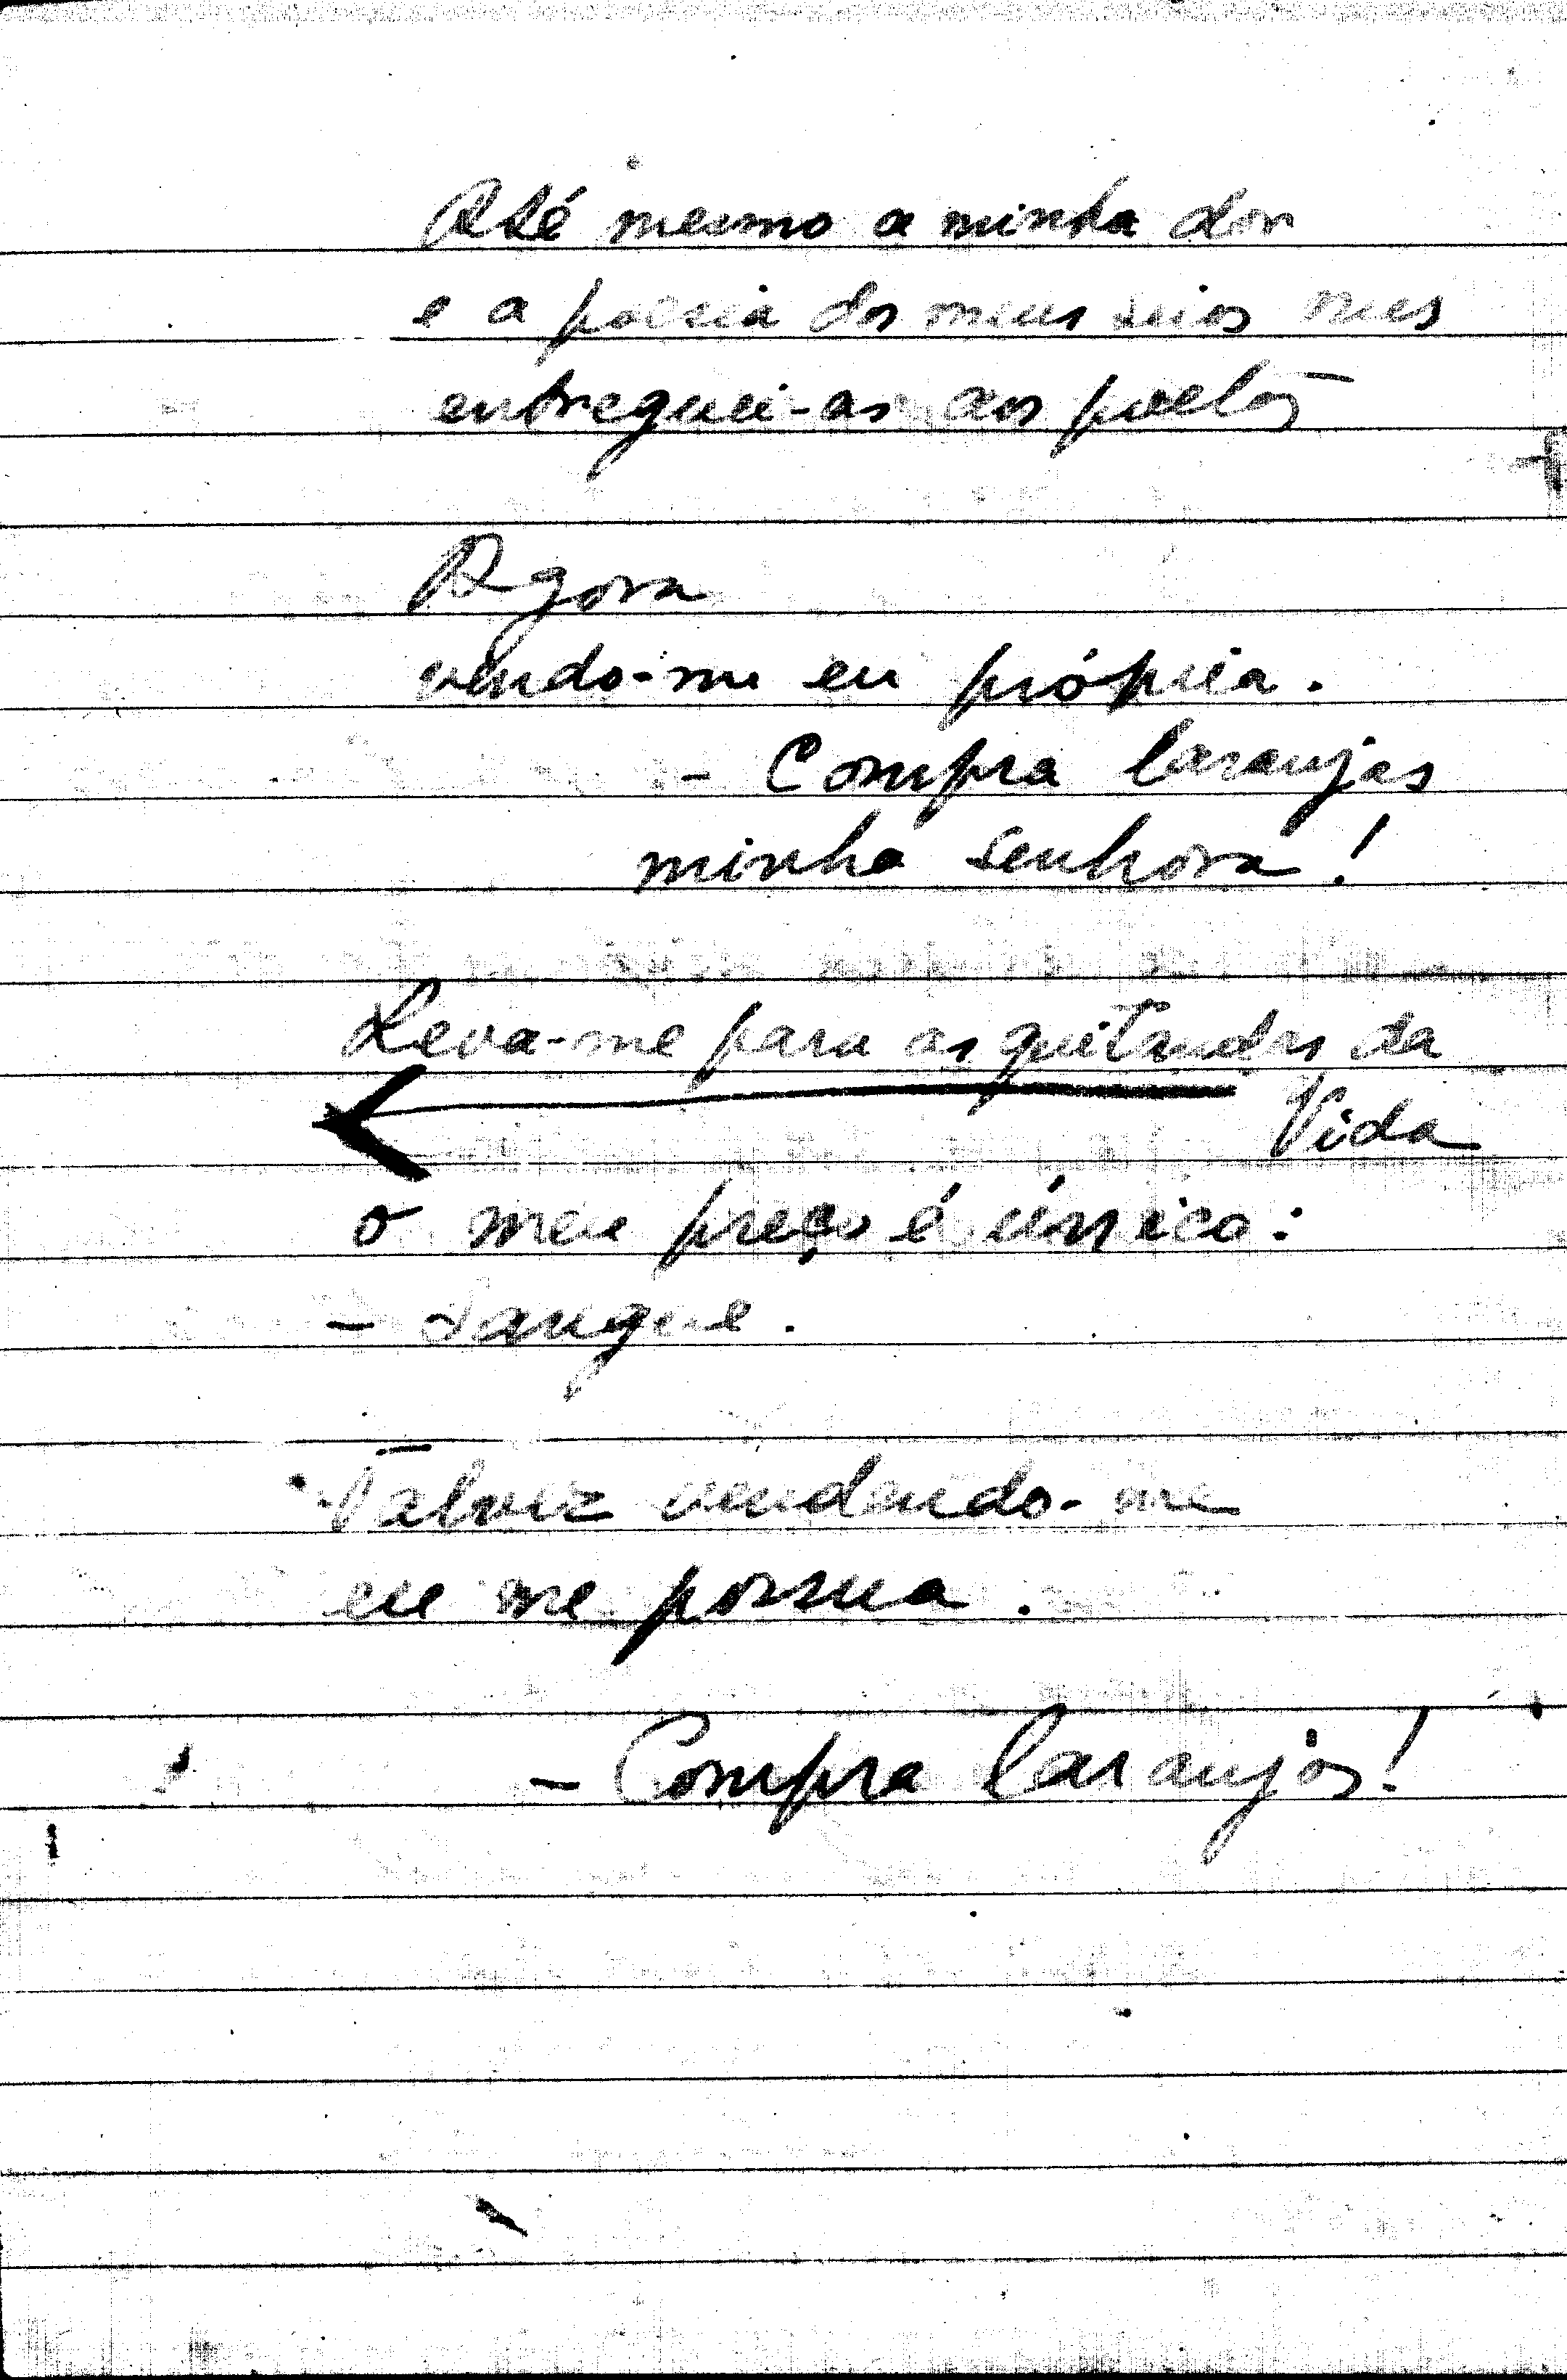 Até mesmo a minha dor
e a poesia dos meus seios nus
entreguei-as aos poetas
Agora
vendo-me eu própria.
- Compra laranjas
minha senhora!
Leva-me para as quitandas da
Vida
o meu preço é único:
- sangue.
Talvez vendendo-me
eu me possua.
- Compra laranjas!